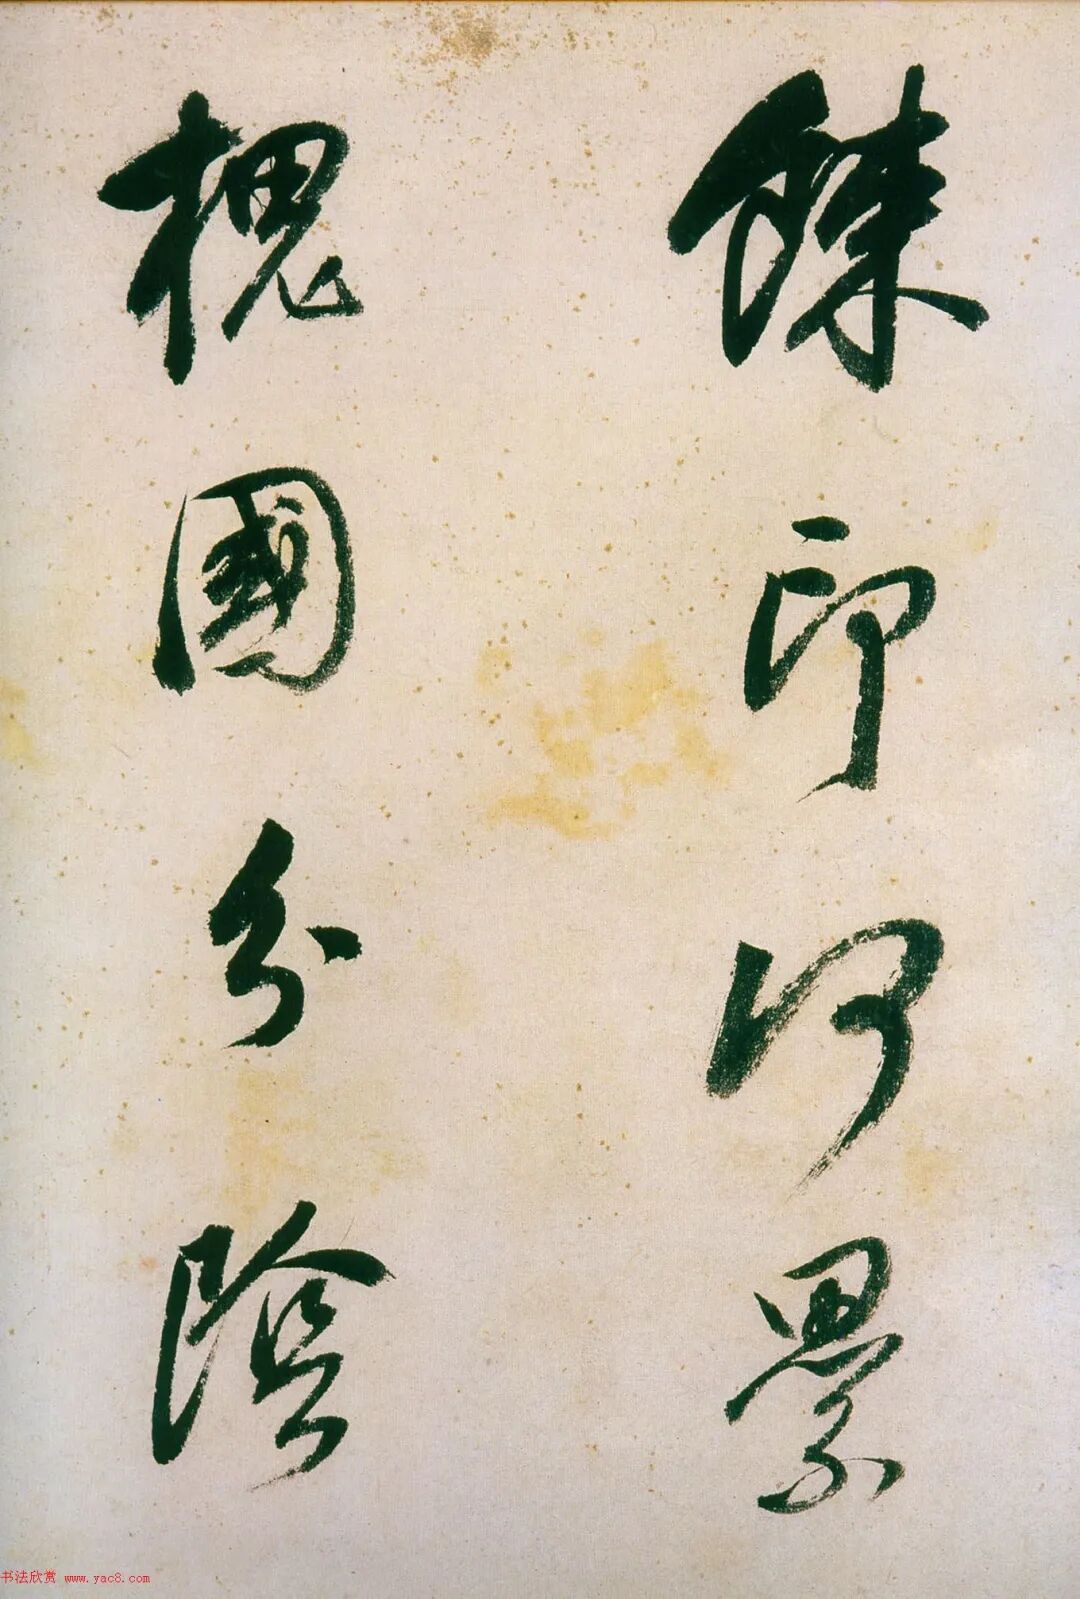 印何累
槐國分陰
书法欣赏 www.yac8.com